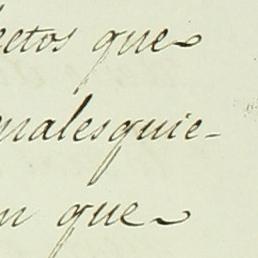 ectos que
ualesquie-
n que